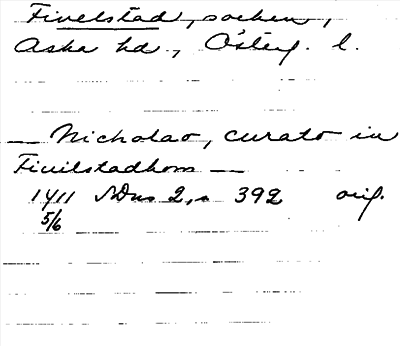 Fivelstad, socken,
Aska hd., Österg. l.
— Nicholao, curato in
Fiuilstadhom —
1411 SDns 2, s 392 orig.
5/6